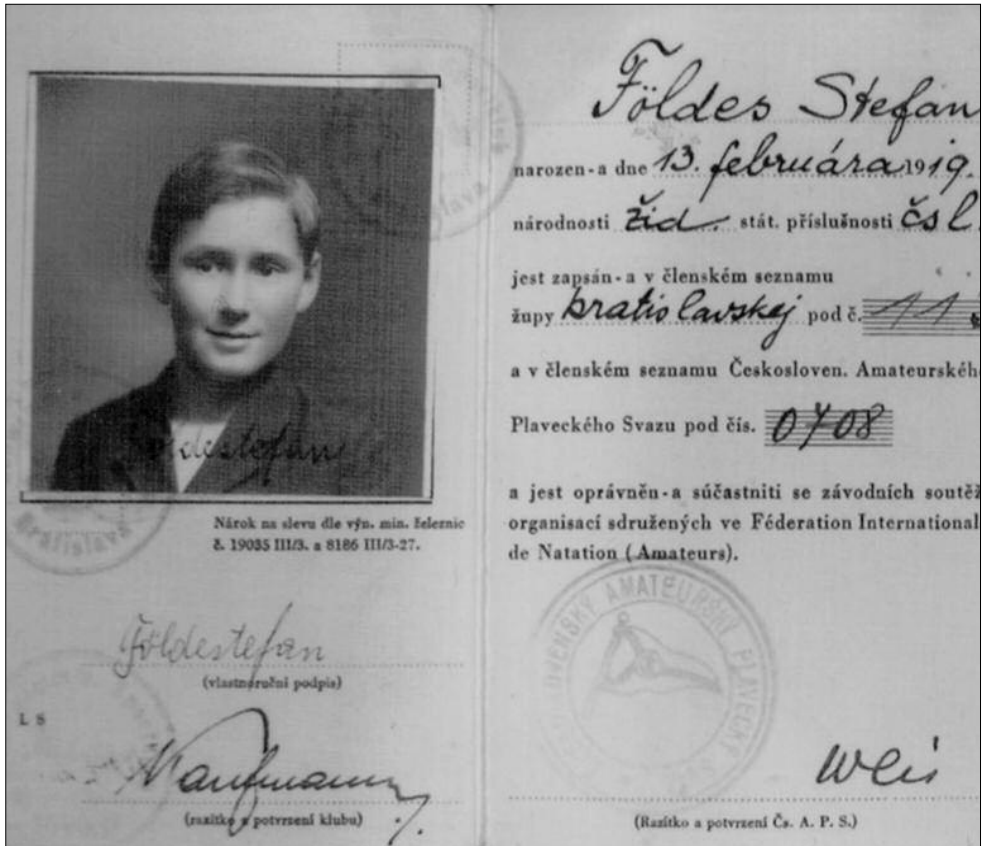 Földestefan
Nárok na slevu dle výn. min. železnic
č. 19035 III/3. a 8186 III/3-27.
Bratislava
Földestefan
(vlastnoruční podpis)
L S
Kaufmann
(razítko a potvrzení klubu)
Földes Stefan
narozen-a dne 13. februára 1919.
národnosti žid. stát. příslušnosti čsl
jest zapsán-a v členském seznamu
župy bratislavskej pod č. 11
a v členském seznamu Českosloven. Amateurskéh
Plaveckého Svazu pod čís. 0708
a jest oprávněn-a súčastniti se závodních soutěž
organisací sdružených ve Féderation International
de Natation (Amateurs).
OVENSKÝ AMATEURSKÝ PLAVECKÝ
Weis
(Razítko a potvrzení Čs. A. P. S.)